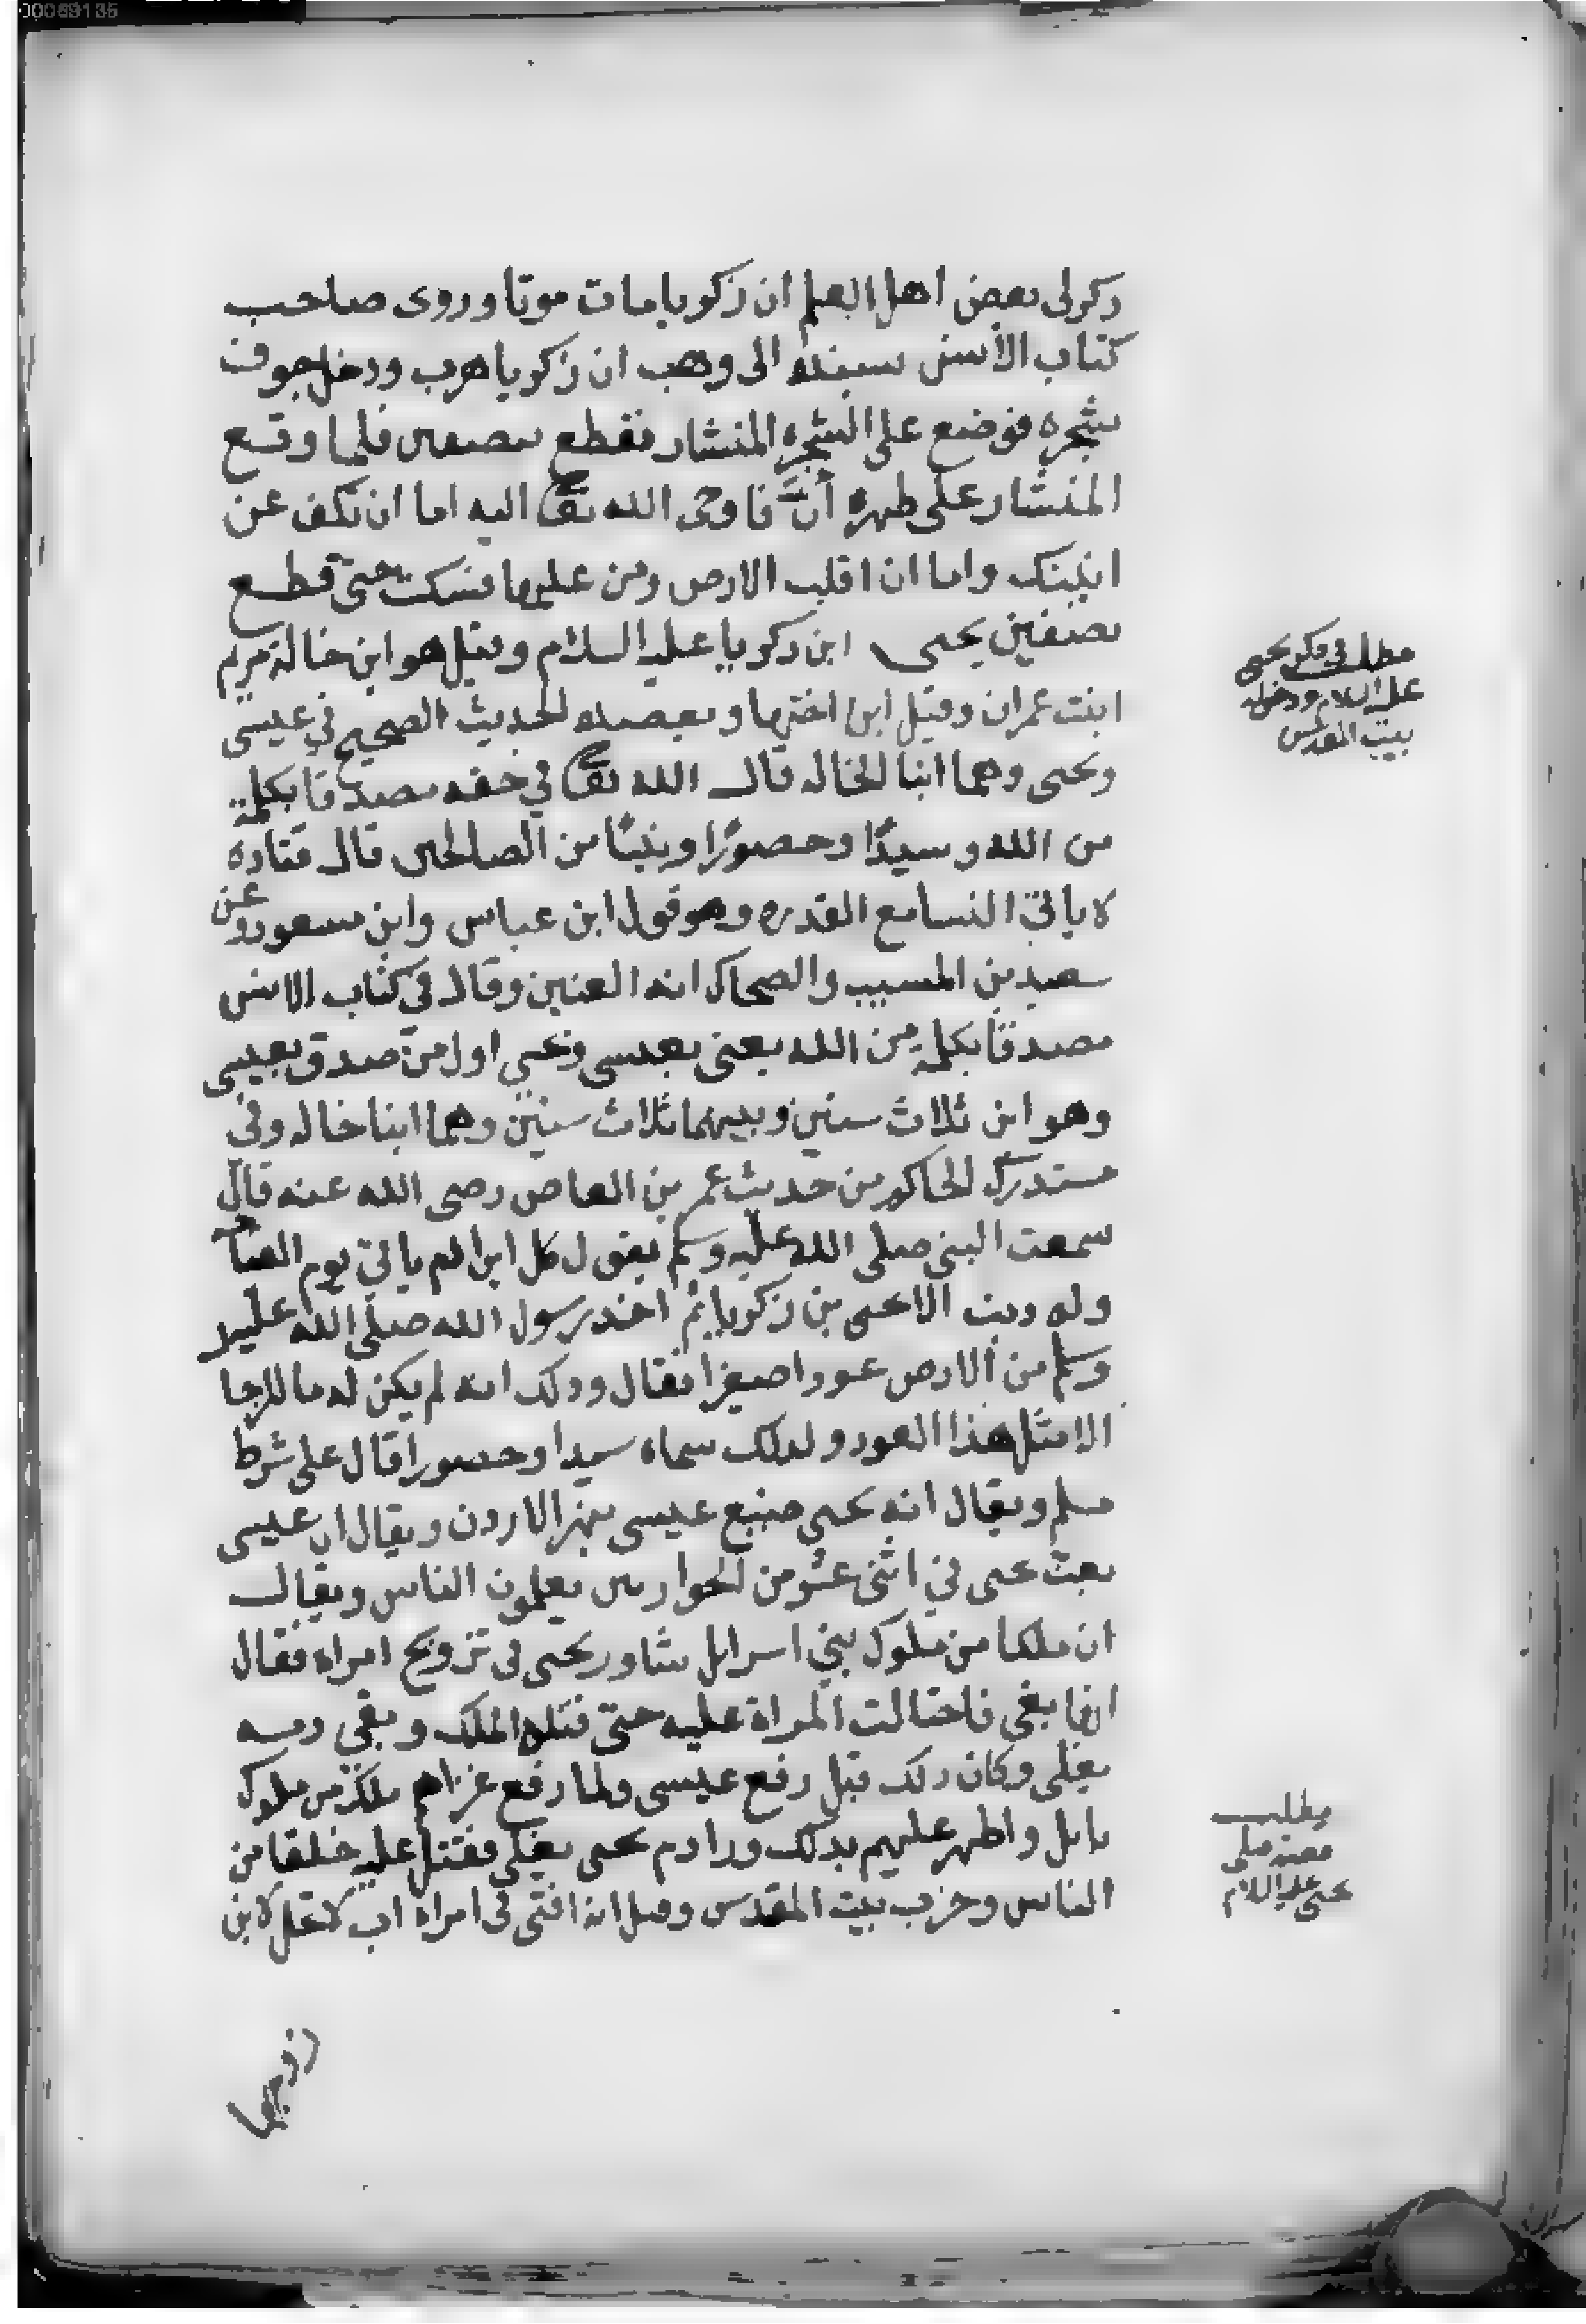 ذكر لى بعض اهل العلم ان زكريا مات موتا وروى صاحب
كتاب الأنس بسنده الى وهب ان زكريا هرب ودخل جوف
شجره فوضع على الشجره المنشار فقطع نصفين فلما وقع
المنشار على ظهره أنّ فاوحى الله تعا اليه اما ان تكف عن
انينك واما ان اقلب الارض ومن عليها فسكت حتى قطع
نصفين يحيى ابن زكريا عليه السلام وقيل هو ابن خالة مريم
ابنت عمران وقيل ابن اختها ويعضده الحديث الصحيح في عيسى
ويحيى وهما ابنا الخاله قال الله تعا في حقه مصدقا بكلمة
من الله وسيدًا وحصورًا ونبيًا من الصالحين قال قتاده
لا ياتي النسا مع القدره وهو قول ابن عباس وابن مسعود وعن
سعيد بن المسيب والضحاك انه العنين وقال في كتاب الانس
مصدقًا بكلمة من الله يعنى بعيسى ويحيي اول من صدق بعيسى
وهو ابن ثلاث سنين وبينهما ثلاث سنين وهما ابنا خاله وفي
مستدرك الحاكم من حديث عمر بن العاص رضى الله عنه قال
سمعت النبي صلى الله عليه وسلم يقول كل ابن ادم ياتي يوم القيامة
وله ذنب الا يحيى بن زكريا ثم اخذ رسول الله صلى الله عليه
وسلم من الارض عودا صغيرا فقال وذلك انه لم يكن له ما للرجا
الا مثل هذا العود ولذلك سماه سيدا وحصورا قال على شرط
مسلم ويقال انه يحيى صبغ عيسى بنهر الاردن ويقال ان عيسى
بعث يحيى في اثنى عشر من الحواريين يعلمون الناس ويقال
ان ملكا من ملوك بني اسرايل شاور يحيى فى تزويج امراه فقال
انها بغى فاحتالت المراة عليه حتى قتله الملك وبقي دمه
يغلى وكان ذلك قبل رفع عيسى ولما رفع غزاهم ملك من ملوك
بابل واظهر عليهم بذلك وراى دم يحيى يغلي فقتل عليه خلقا من
الناس وخرب بيت المقدس وقيل انه افتى فى امراه اب لا تحل لابن
زوجها
مطلب في ذكر يحيى
عليه السلام ودخوله
بيت المقدس
مطلب
يحيى عليه السلام